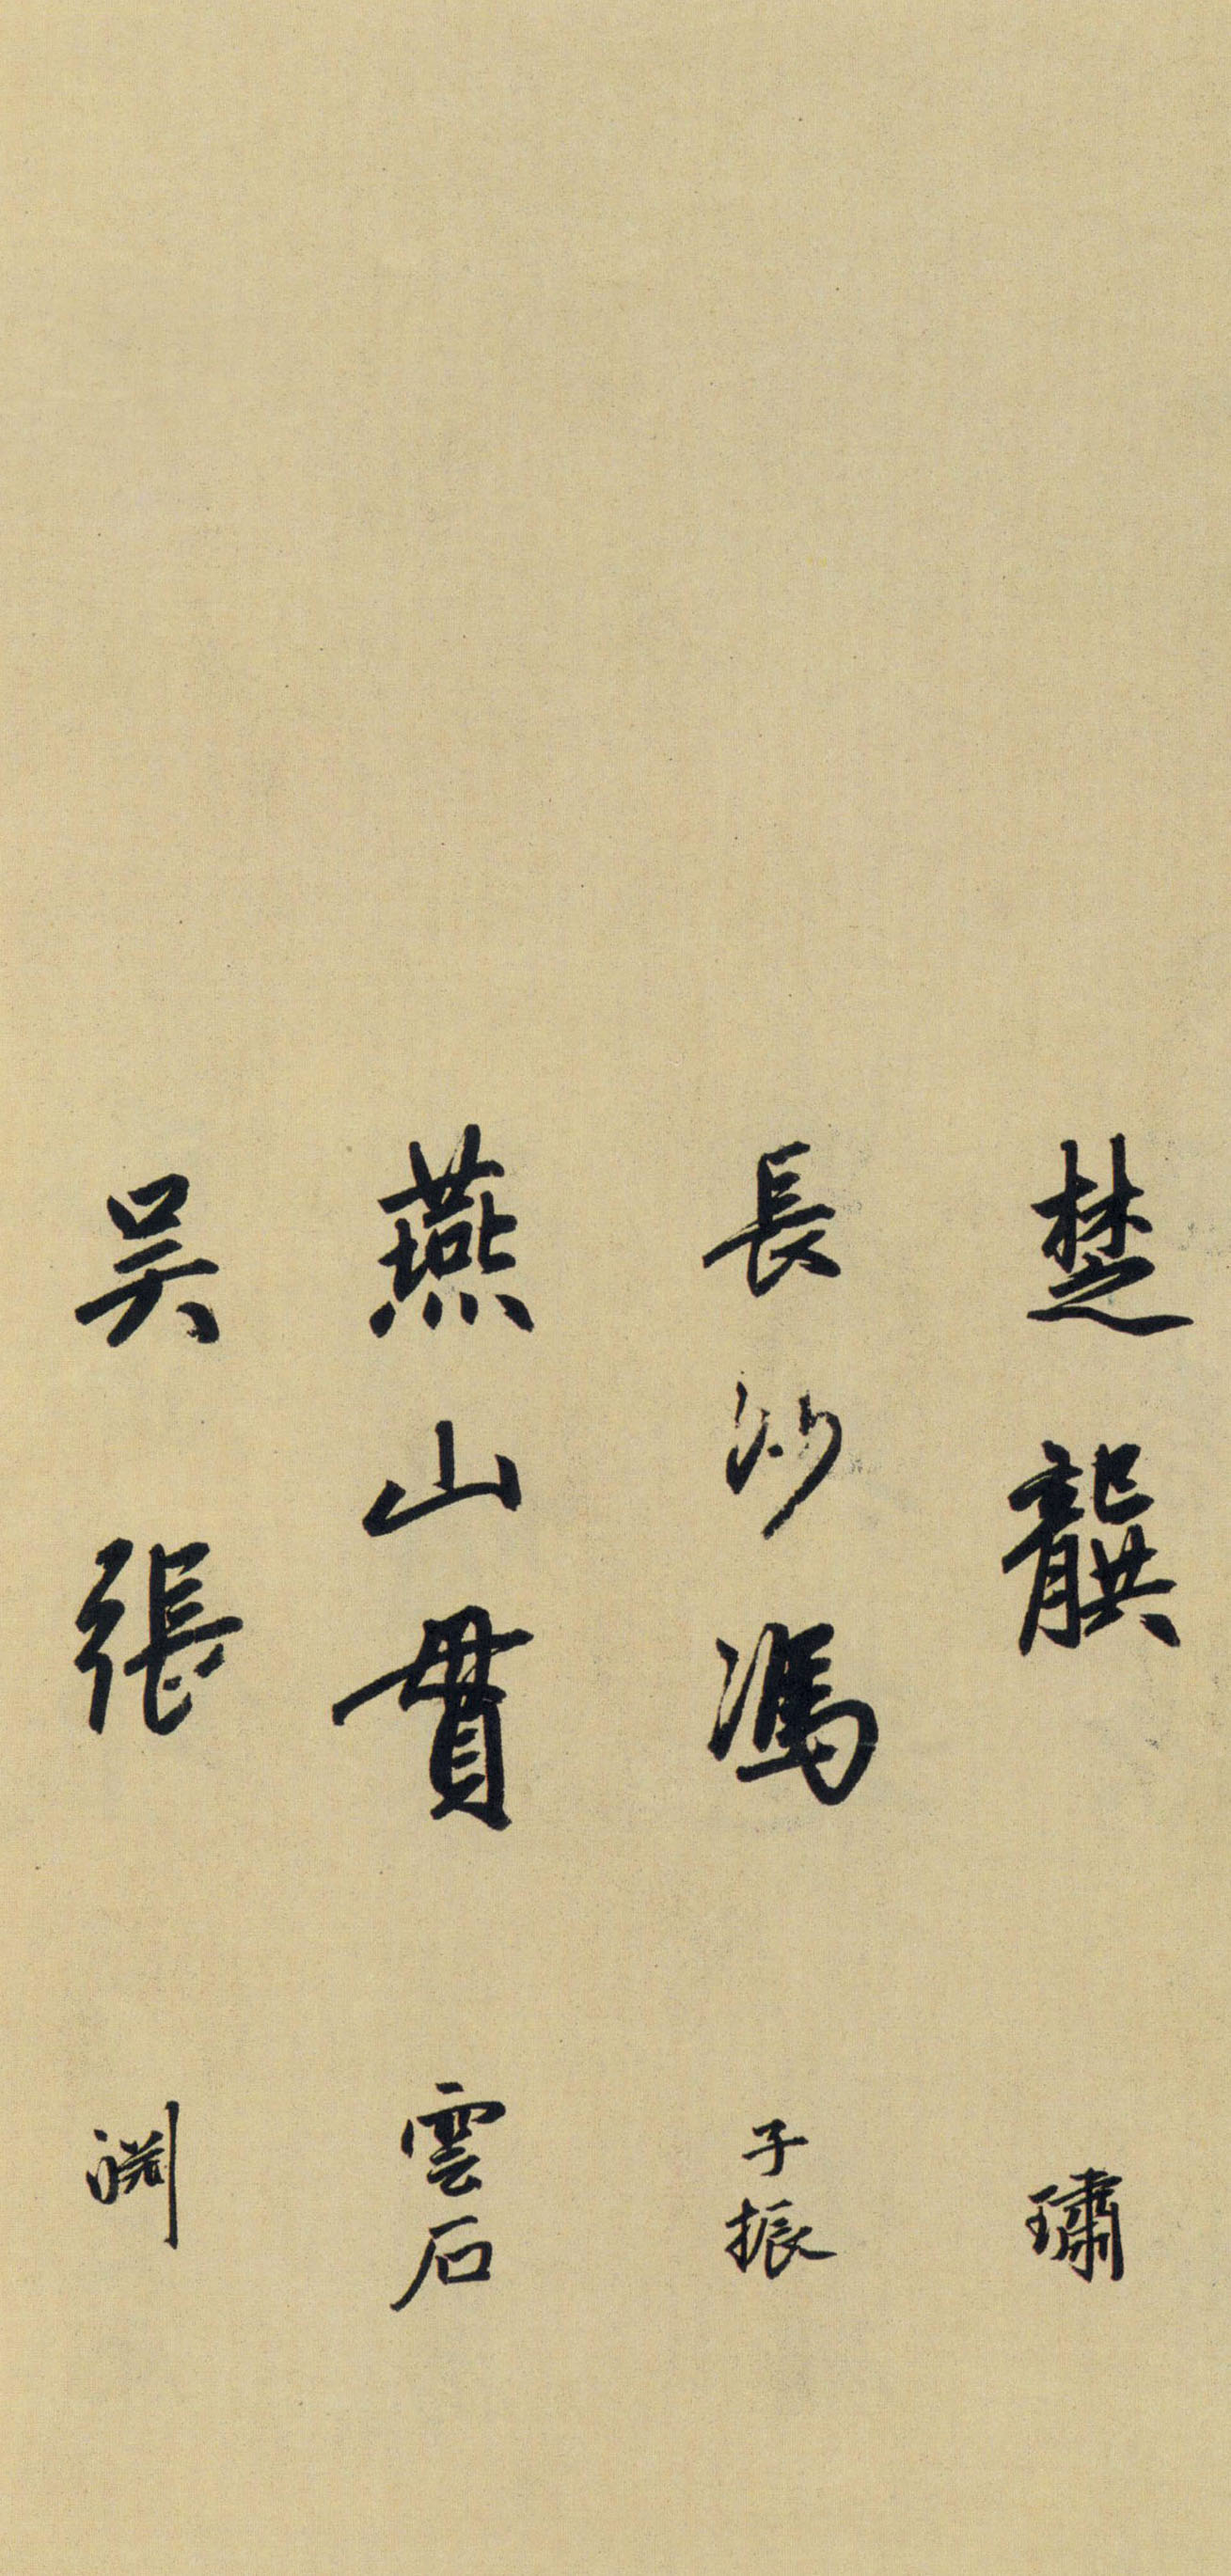 楚龔璛
長沙馮子振
燕山貫雲石
吳張渊